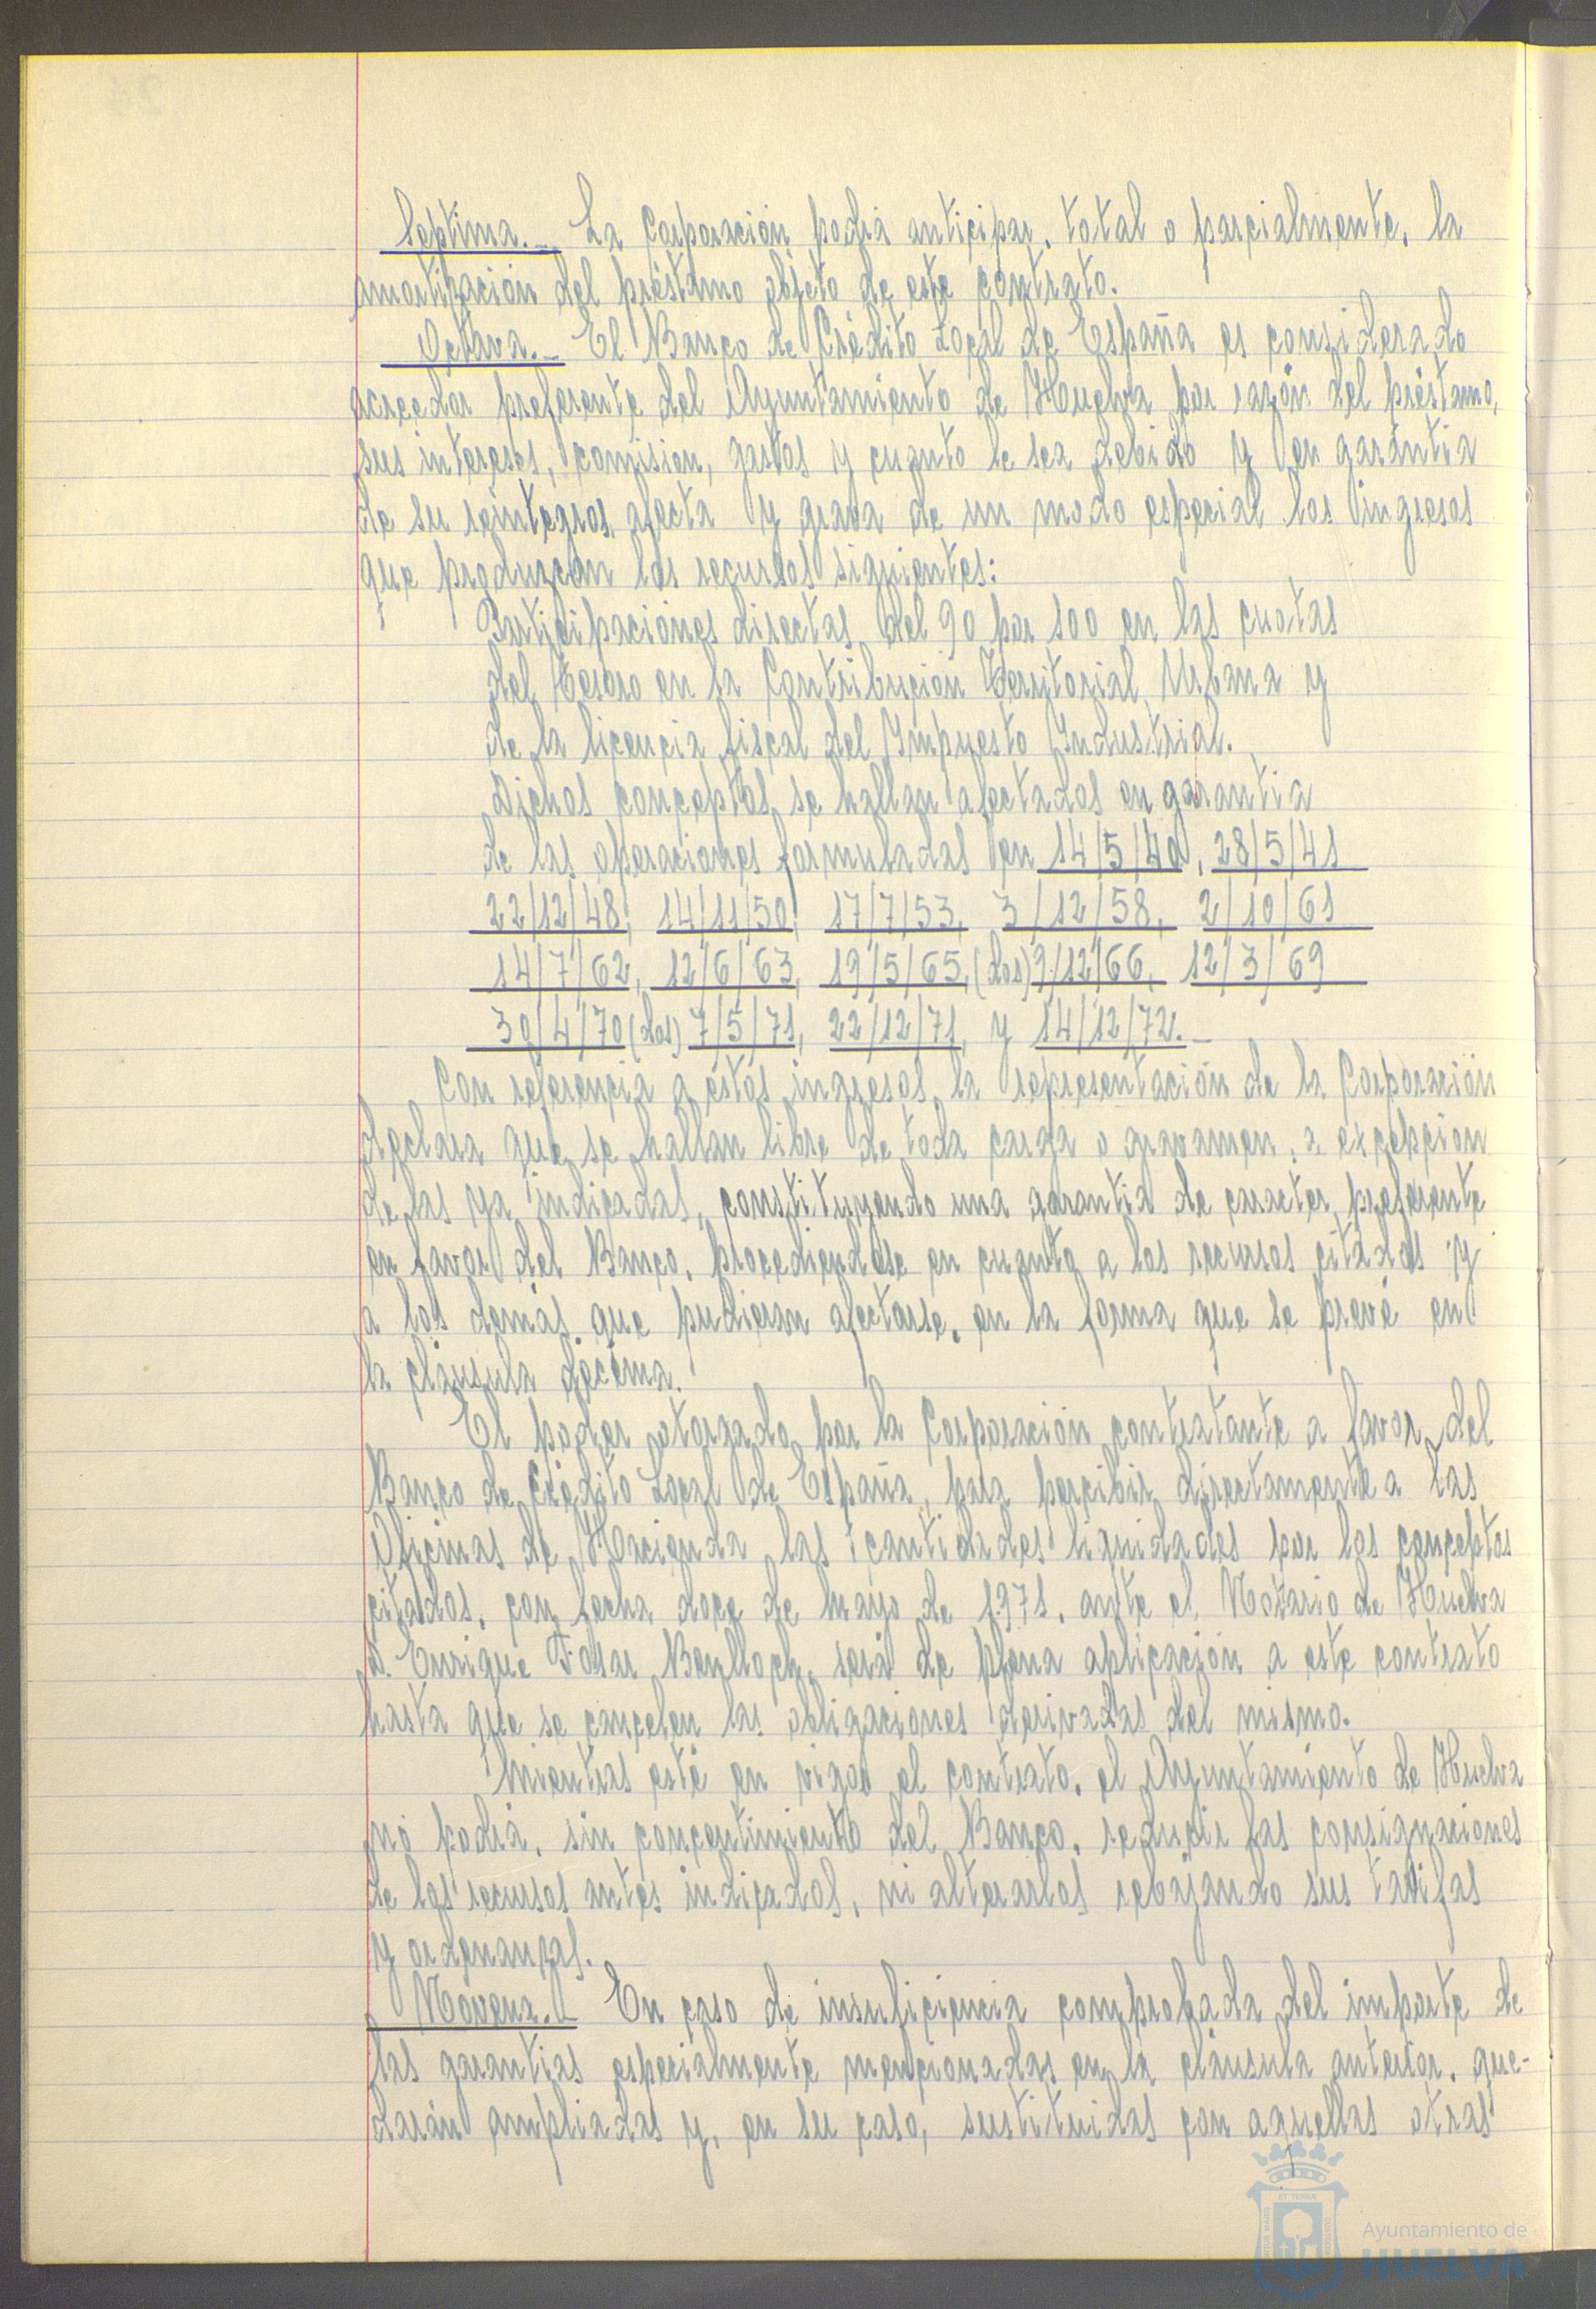 Septima.- La Corporación podrá anticipar, total o parcialmente, la
amortización del préstamo objeto de este contrato.
Octava.- El Banco de Crédito Local de España es considerado
acreedor preferente del Ayuntamiento de Huelva por razón del préstamo,
sus intereses, comision, gastos y cuanto le sea debido y en garantia
de su reintegros, afecta y grava de un modo especial los ingresos
que produzcan los recursos siguientes:
Participaciones directas del 90 por 100 en las cuotas
del Tesoro en la Contribución Territorial Urbana y
de la licencia fiscal del Impuesto Industrial.
Dichos conceptos se hallan afectados en garantia
de las operaciones formuladas en 14/5/40, 28/5/41
22/12/48, 14/11/50, 17/7/53, 3/12/58, 2/10/61
14/7/62, 12/6/63, 19/5/65, (dos) 9/12/66, 12/3/69
30/4/70 (dos) 7/5/71, 22/12/71, y 14/12/72.-
Con referencia a éstos ingresos, la representación de la Corporación
declara que se hallan libre de toda carga o gravamen, a excepcion
de las ya indicadas, constituyendo una garantia de caracter preferente
en favor del Banco, procediendose en cuanto a los recursos citados y
a los demás que pudieran afectarse, en la forma que se prevé en
la cláusula décima.
El poder otorgado por la Corporación contratante a favor del
Banco de Crédito Local de España, para percibir directamente a las
Oficinas de Hacienda las cantidades liquidades por los conceptos
citados, con fecha doce de mayo de 1971, ante el Notario de Huelva
D. Enrique Fosar Benlloch, será de plena aplicación a este contrato
hasta que se cancelen las obligaciones derivadas del mismo.
Mientras esté en vigor el contrato, el Ayuntamiento de Huelva
no podrá, sin concentimiento del Banco, reducir las consignaciones
de los recursos antes indicados, ni alterarlos rebajando sus tarifas
y ordenanzas.
Novena.- En caso de insuficiencia comprobada del importe de
las garantias especialmente mencionadas en la cláusula anterior, que-
darán ampliadas y, en su caso, sustituidas con aquellas otras
Ayuntamiento de
HUELVA